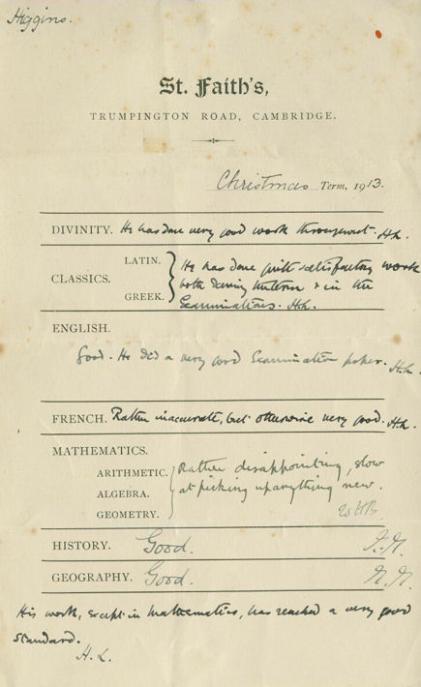 Higgins.
St. Faith's,
TRUMPINGTON ROAD, CAMBRIDGE.
Christmas Term, 1913.
DIVINITY. He has done very good work throughout. H.L.
LATIN.
CLASSICS.
GREEK.
He has done quite satisfactory work
both during the term & in the
Examinations. H.L.
ENGLISH.
Good. He did a very good Examination paper. H.L.
FRENCH. Rather inaccurate, but otherwise very good. H.L.
MATHEMATICS.
ARITHMETIC.
ALGEBRA.
GEOMETRY.
Rather disappointing, slow
at picking up anything new.
HISTORY. Good.
GEOGRAPHY. Good.
His work, except in Mathematics, has reached a very good
standard.
H.L.